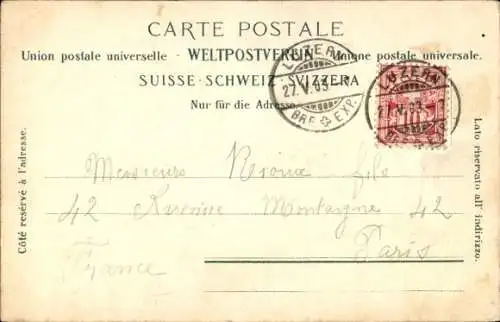 CARTE POSTALE
Union postale universelle. · WELTPOSTVEREIN · Unione postale universale.
SUISSE · SCHWEIZ · SVIZZERA
Nur für die Adresse
LUZERN
27.V.03.
BRF. EXP.
LUZERN
27.V.03.
10
Côté reservé à l'adresse.
Lato riservato all' indirizzo.
Messieurs fils
42 Avenue Montaigne 42
Paris
France